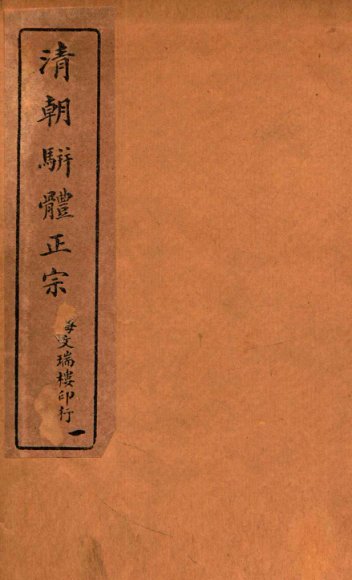 清朝駢體正宗
海文瑞樓印行
一